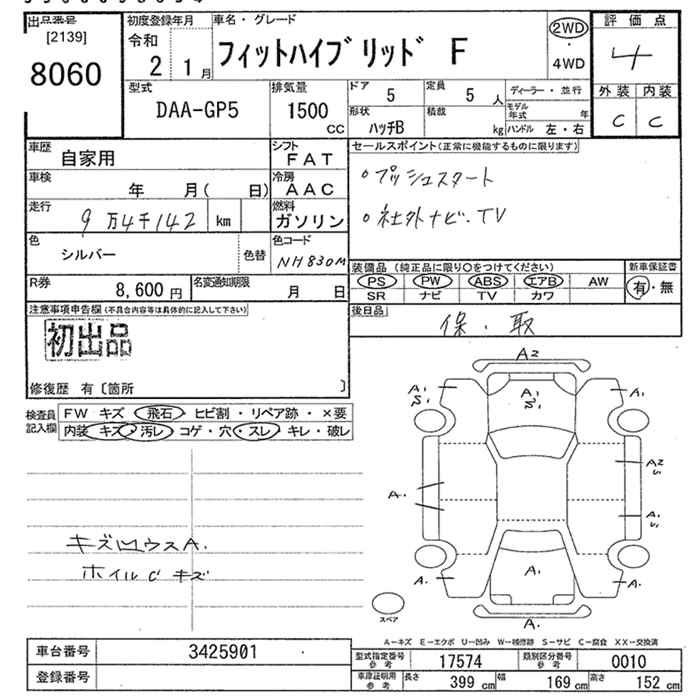 出品番号
[2139]
8060
初度登録年月
令和
2 1月
車名・グレード
フィットハイブリッド F
2WD
・
4WD
評価点
4
外装 内装
C C
型式
DAA-GP5
排気量
1500
CC
ドア
5
定員
5 人
ディーラー・並行
形状
ハッチB
積載
kg
モデル年式 年
ハンドル 左・右
車歴
自家用
シフト
FAT
車検
年 月( 日)
冷房
AAC
走行
9万4千142 km
燃料
ガソリン
色
シルバー
色替
色コード
NH830M
R券
8,600円
名変通知期限
月 日
セールスポイント(正常に機能するものに限ります)
○プッシュスタート
○社外ナビ.TV
装備品(純正品に限り○をつけてください)
PS PW ABS エアB AW
SR ナビ TV カワ
新車保証書
有・無
後日品
保・取
注意事項申告欄(不具合内容等は具体的に記入して下さい)
初出品
修復歴 有〔箇所 〕
検査員記入欄
FW キズ・飛石・ヒビ割・リペア跡・×要
内装 キズ・汚レ・コゲ・穴・スレ・キレ・破レ
A2
A1 S1
A1 S1
A1
A.
A2
A1
A.
A1
A.
A.
キズ凹ウスA.
ホイルC キズ
スペア
A－キズ E－エクボ U－凹み W－補修跡 S－サビ C－腐食 XX－交換済
車台番号
3425901
登録番号
型式指定番号 参考
17574
類別区分番号 参考
0010
車庫証明用 参考
長さ 399 cm
幅 169 cm
高さ 152 cm